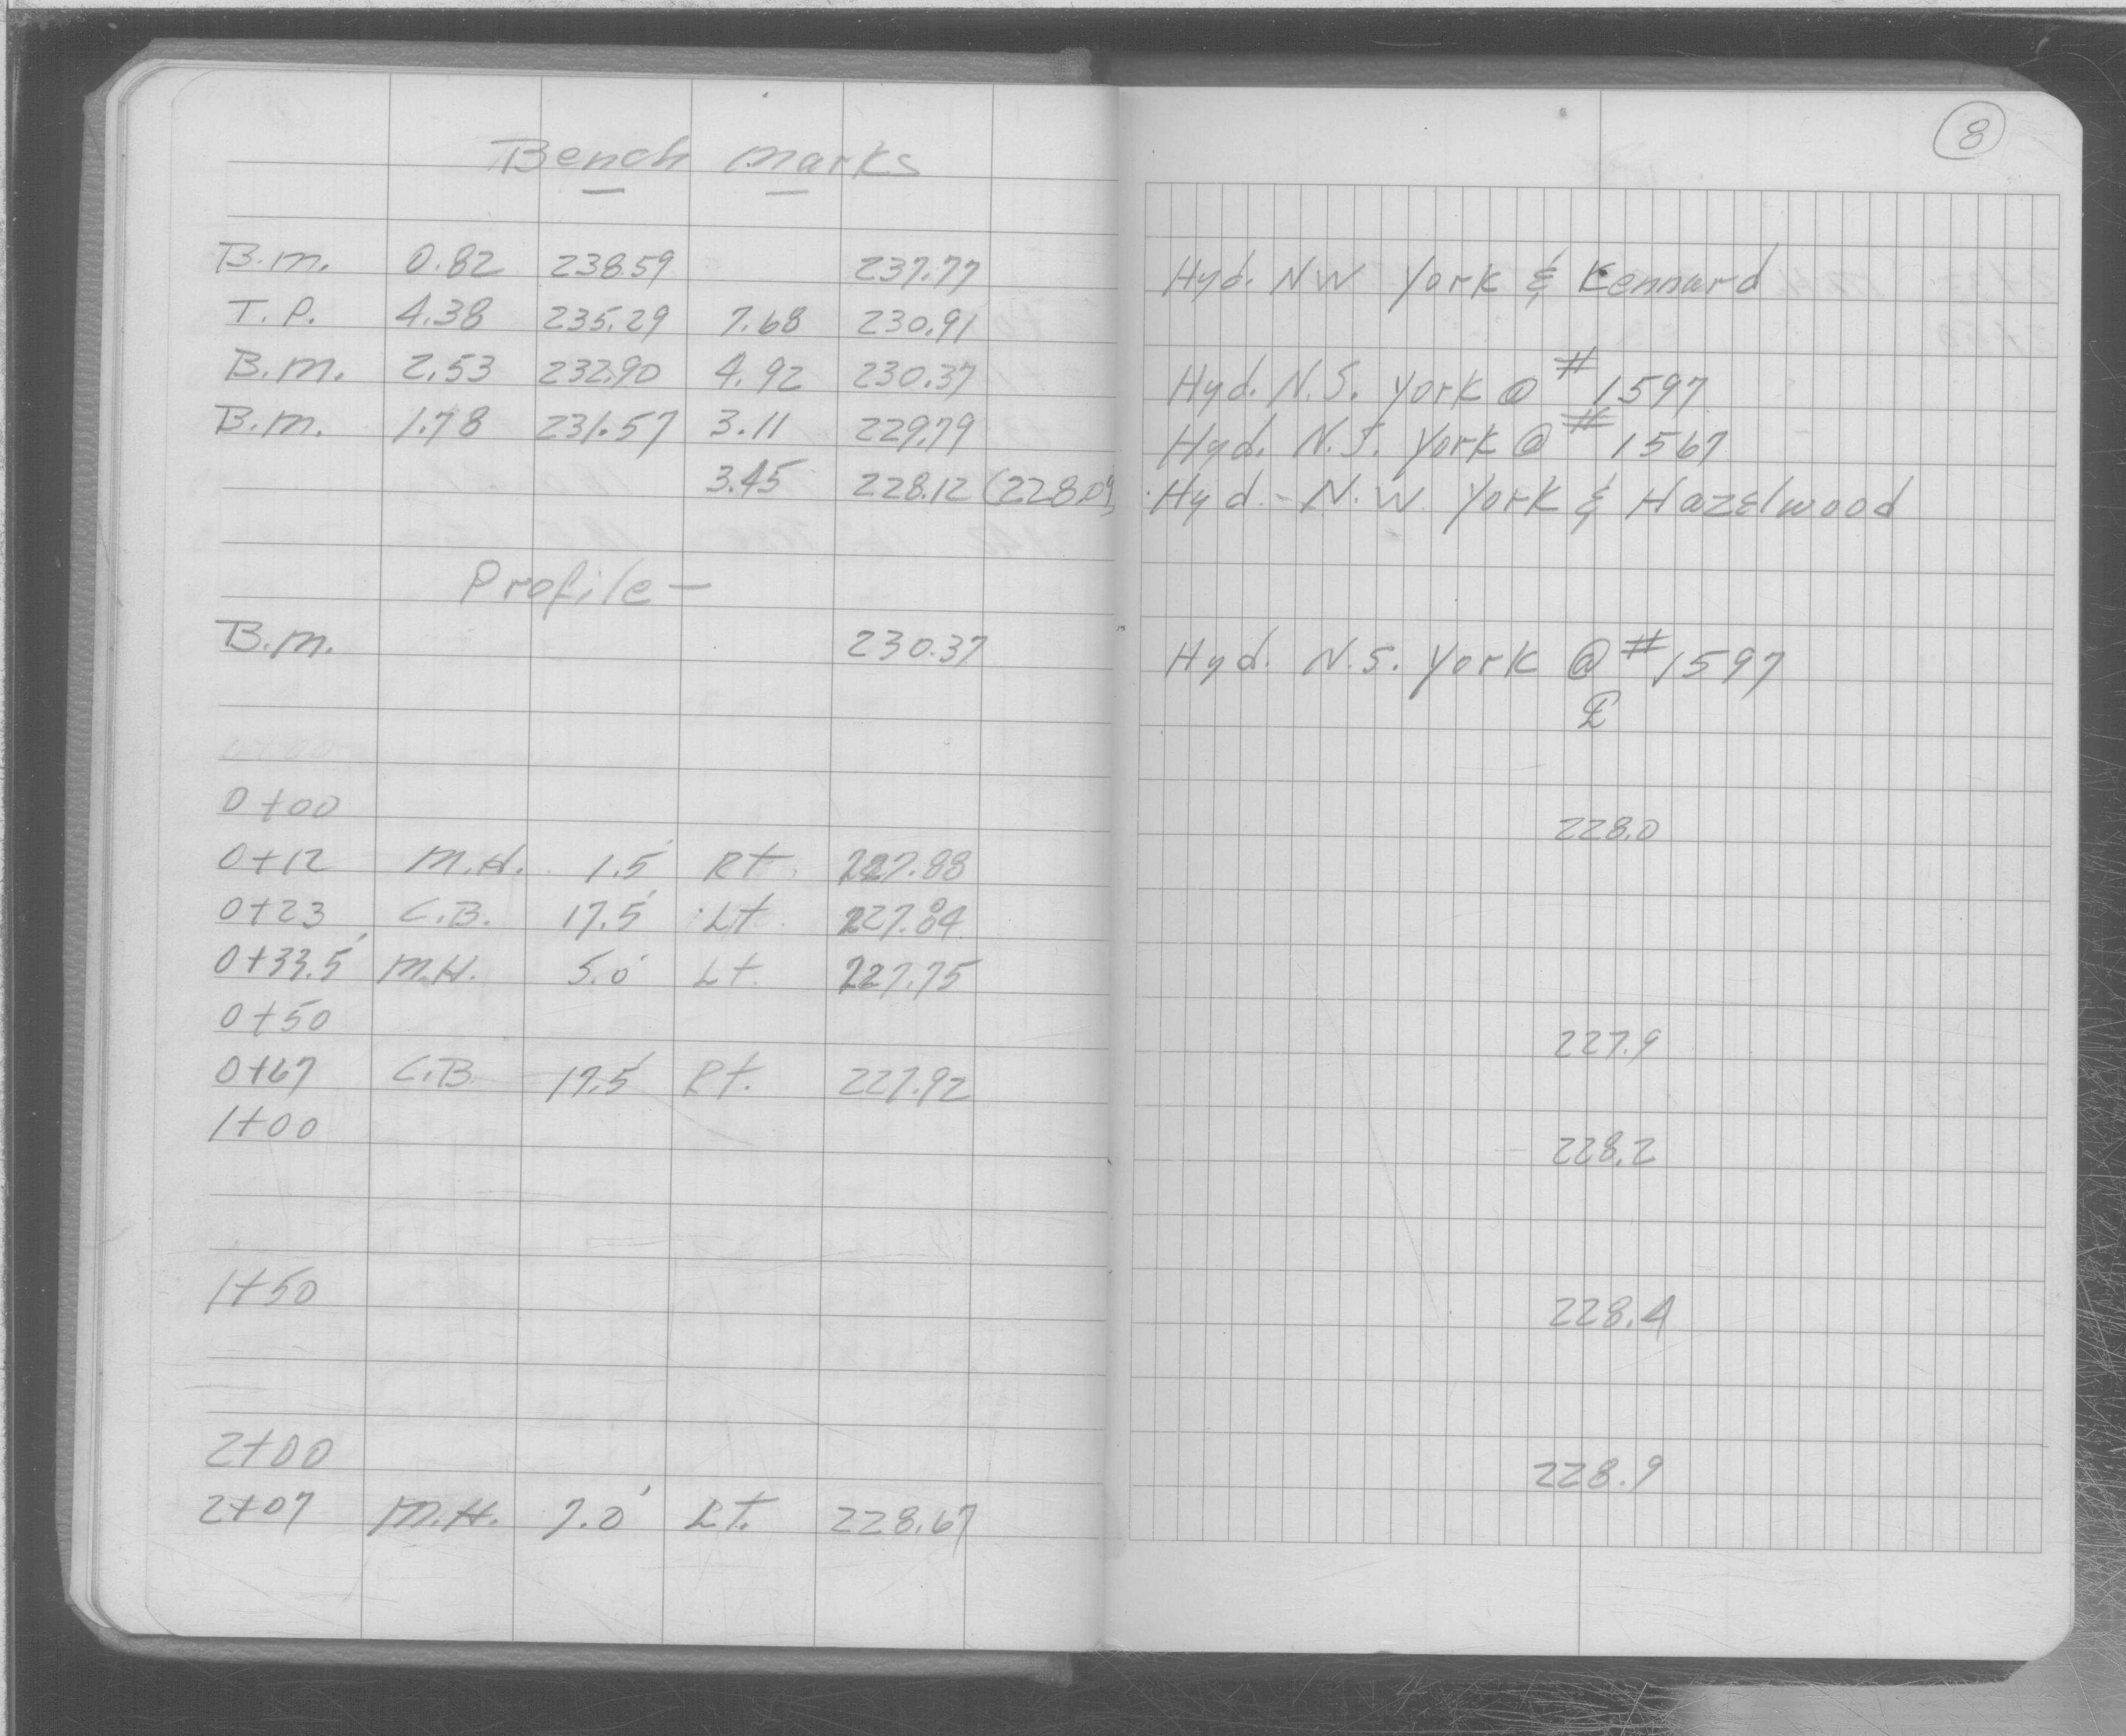 8
Bench Marks
B.M. 0.82 238.59 237.77 Hyd. NW York & Kennard
T.P. 4.38 235.29 7.68 230.91
B.M. 2.53 232.90 4.92 230.37 Hyd. N.S. York @ #1597
B.M. 1.78 231.57 3.11 229.79 Hyd. N.S. York @ #1567
3.45 228.12 (228.09) Hyd. - N.W. York & Hazelwood
Profile -
B.M. 230.37 Hyd. N.S. York @ #1597
℄
0+00
0+00 228.0
0+12 M.H. 1.5' Rt. 227.88
0+23 C.B. 17.5' Lt.
0+33.5' M.H. 5.0' Lt. 227.75
0+50 227.9
0+67 C.B. 17.5' Rt. 227.92
1+00 228.2
1+50 228.4
2+00 228.9
2+07 M.H. 7.0' Lt. 228.67